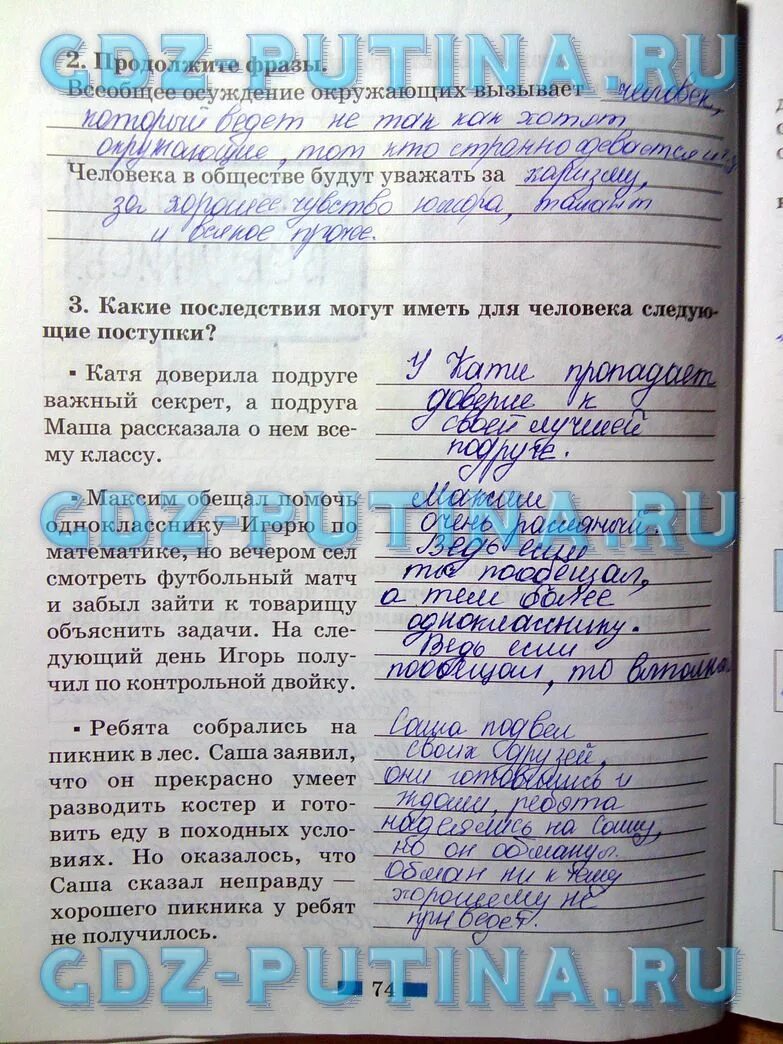 GDZ-PUTINA.RU
2. Продолжите фразы.
Всеобщее осуждение окружающих вызывает человек,
который ведет не так как хотят
окружающие, тот кто странно одевается
Человека в обществе будут уважать за харизму,
за хорошее чувство юмора, талант
и всякое прочее.
3. Какие последствия могут иметь для человека следую-
щие поступки?
▪ Катя доверила подруге
важный секрет, а подруга
Маша рассказала о нем все-
му классу.
У Кати пропадает
доверие к
своей лучшей
подруге.
GDZ-PUTINA.RU
▪ Максим обещал помочь
однокласснику Игорю по
математике, но вечером сел
смотреть футбольный матч
и забыл зайти к товарищу
объяснить задачи. На сле-
дующий день Игорь полу-
чил по контрольной двойку.
Максим
очень рассеяный.
Ведь если
ты пообещал,
а тем более
однокласснику.
Ведь если
пообещал, то
▪ Ребята собрались на
пикник в лес. Саша заявил,
что он прекрасно умеет
разводить костер и гото-
вить еду в походных усло-
виях. Но оказалось, что
Саша сказал неправду —
хорошего пикника у ребят
не получилось.
Саша подвел
своих друзей,
они готовились и
ждали, ребята
надеялись на Сашу,
но он обманул.
Обман ни к чему
хорошему не
приведет.
GDZ-PUTINA.RU
74